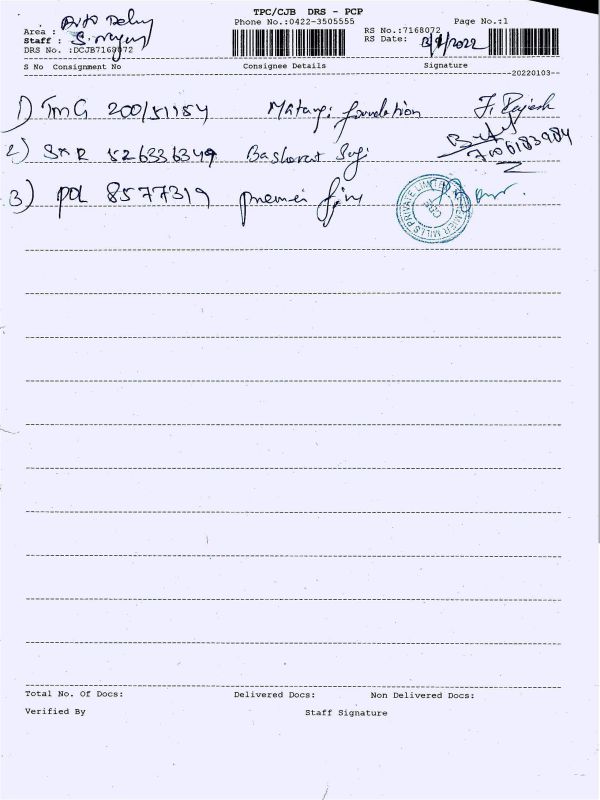 TPC/CJB DRS - PCP
Phone No.:0422-3505555 Page No.:1
Area : Auto Delvy
Staff :
RS No.:7168072
RS Date: 3/1/2022
DRS No. :DCJB7168072
S No Consignment No Consignee Details Signature
20220103
1) TMG 200151154 Matangi foundation J. Rajesh
2) SKR 526336349
3) PDL 8577319 premier
PREMIER MILLS PRIVATE LIMITED
Total No. Of Docs: Delivered Docs: Non Delivered Docs:
Verified By Staff Signature